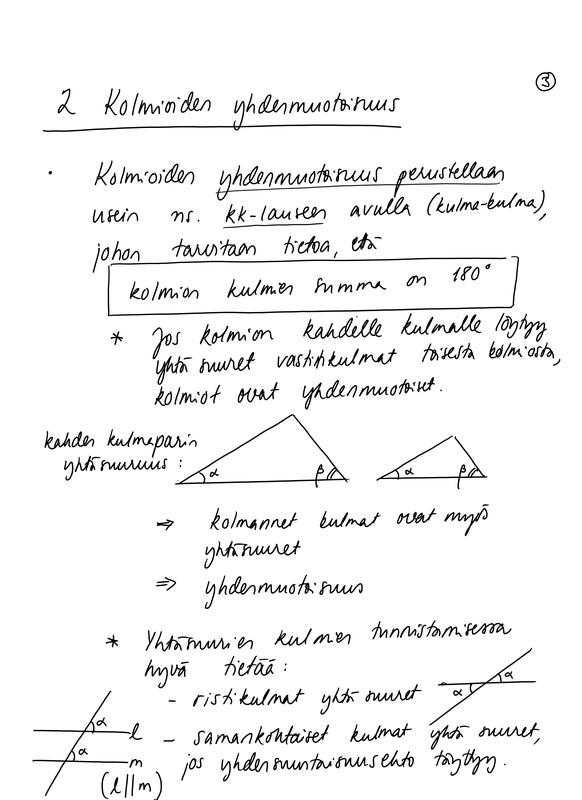 3
2 Kolmioiden yhdenmuotoisuus
• Kolmioiden yhdenmuotoisuus perustellaan
usein ns. kk-lauseen avulla (kulma-kulma),
johon tarvitaan tietoa, että
kolmion kulmien summa on 180°
* Jos kolmion kahdelle kulmalle löytyy
yhtä suuret vastinkulmat toisesta kolmiosta,
kolmiot ovat yhdenmuotoiset.
kahden kulmaparin
yhtäsuuruus:
α β α β
⇒ kolmannet kulmat ovat myös
yhtäsuuret
⇒ yhdenmuotoisuus
* Yhtäsuurien kulmien tunnistamisessa
hyvä tietää:
- ristikulmat yhtä suuret
α α
- samankohtaiset kulmat yhtä suuret,
jos yhdensuuntaisuusehto täyttyy.
α l
α m
(l||m)